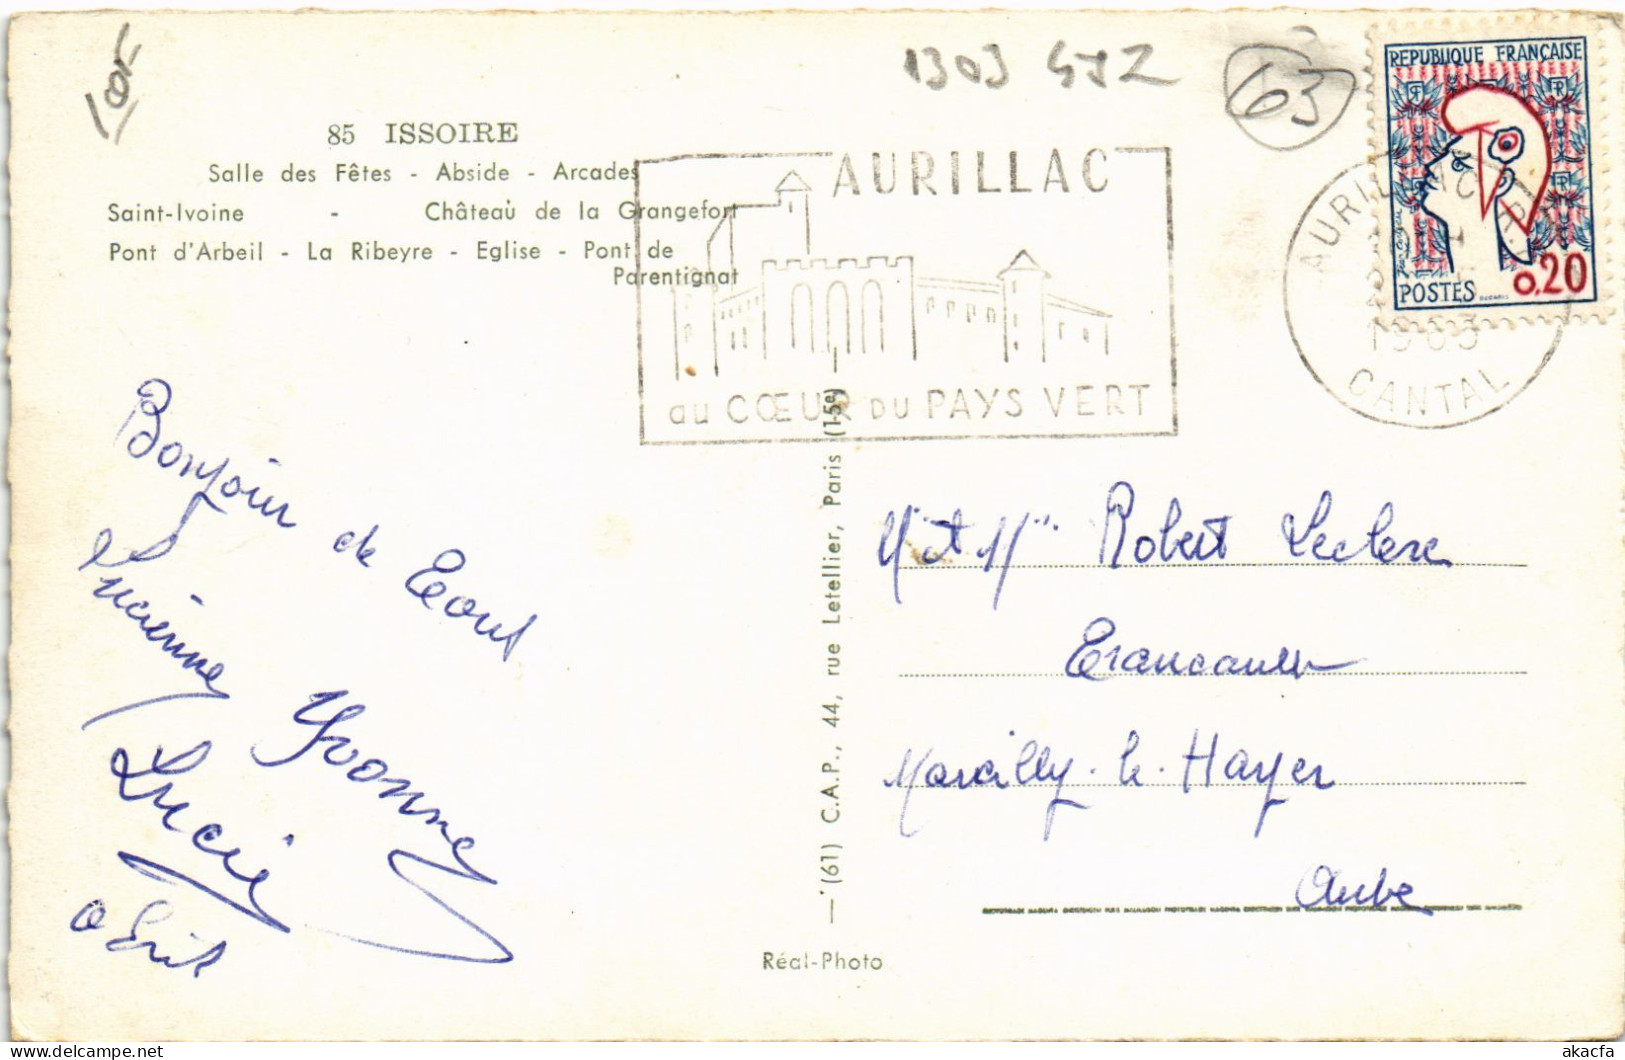 1303 GYZ
63
85 ISSOIRE
Salle des Fêtes - Abside - Arcades
Saint-Ivoine - Château de la Grangefort
Pont d'Arbeil - La Ribeyre - Eglise - Pont de
Parentignat
AURILLAC
au CŒUR DU PAYS VERT
REPUBLIQUE FRANÇAISE
RF
POSTES 0,20
AURILLAC
1963
CANTAL
Bonjour de
Lucienne
Yvonne
Lucie
(61) C.A.P., 44, rue Letellier, Paris (15e)
Réal-Photo
Mr et Mme Robert Leclerc
Marcilly-le-Hayer
Aube
delcampe.net
akacfa